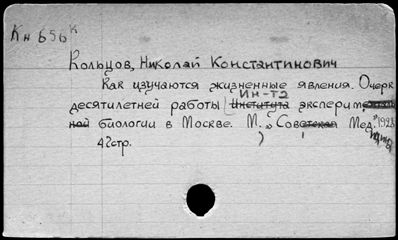 Кн 656 к
Кольцов, Николай Константинович
Как изучаются жизненные явления. Очерк
Ин-та
десятилетней работы Института эксперимен
ной биологии в Москве. М., Советская Мед. 1928
42стр.